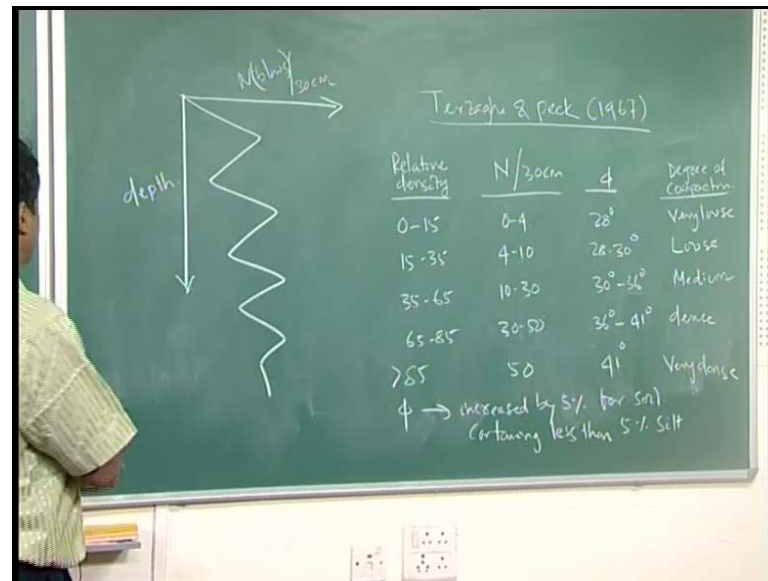 N(blws)/30cm
depth.
Terzaghi & peck (1967)
Relative density N/30cm ɸ Degree of Compactn.
0-15 0-4 28° Very louse
15-35 4-10 28-30° Loose
35-65 10-30 30°-36° Medium
65-85 30-50 36°-41° dense
>85 50 41° Very dense
ɸ → increased by 5% for soil
Containing less than 5% silt